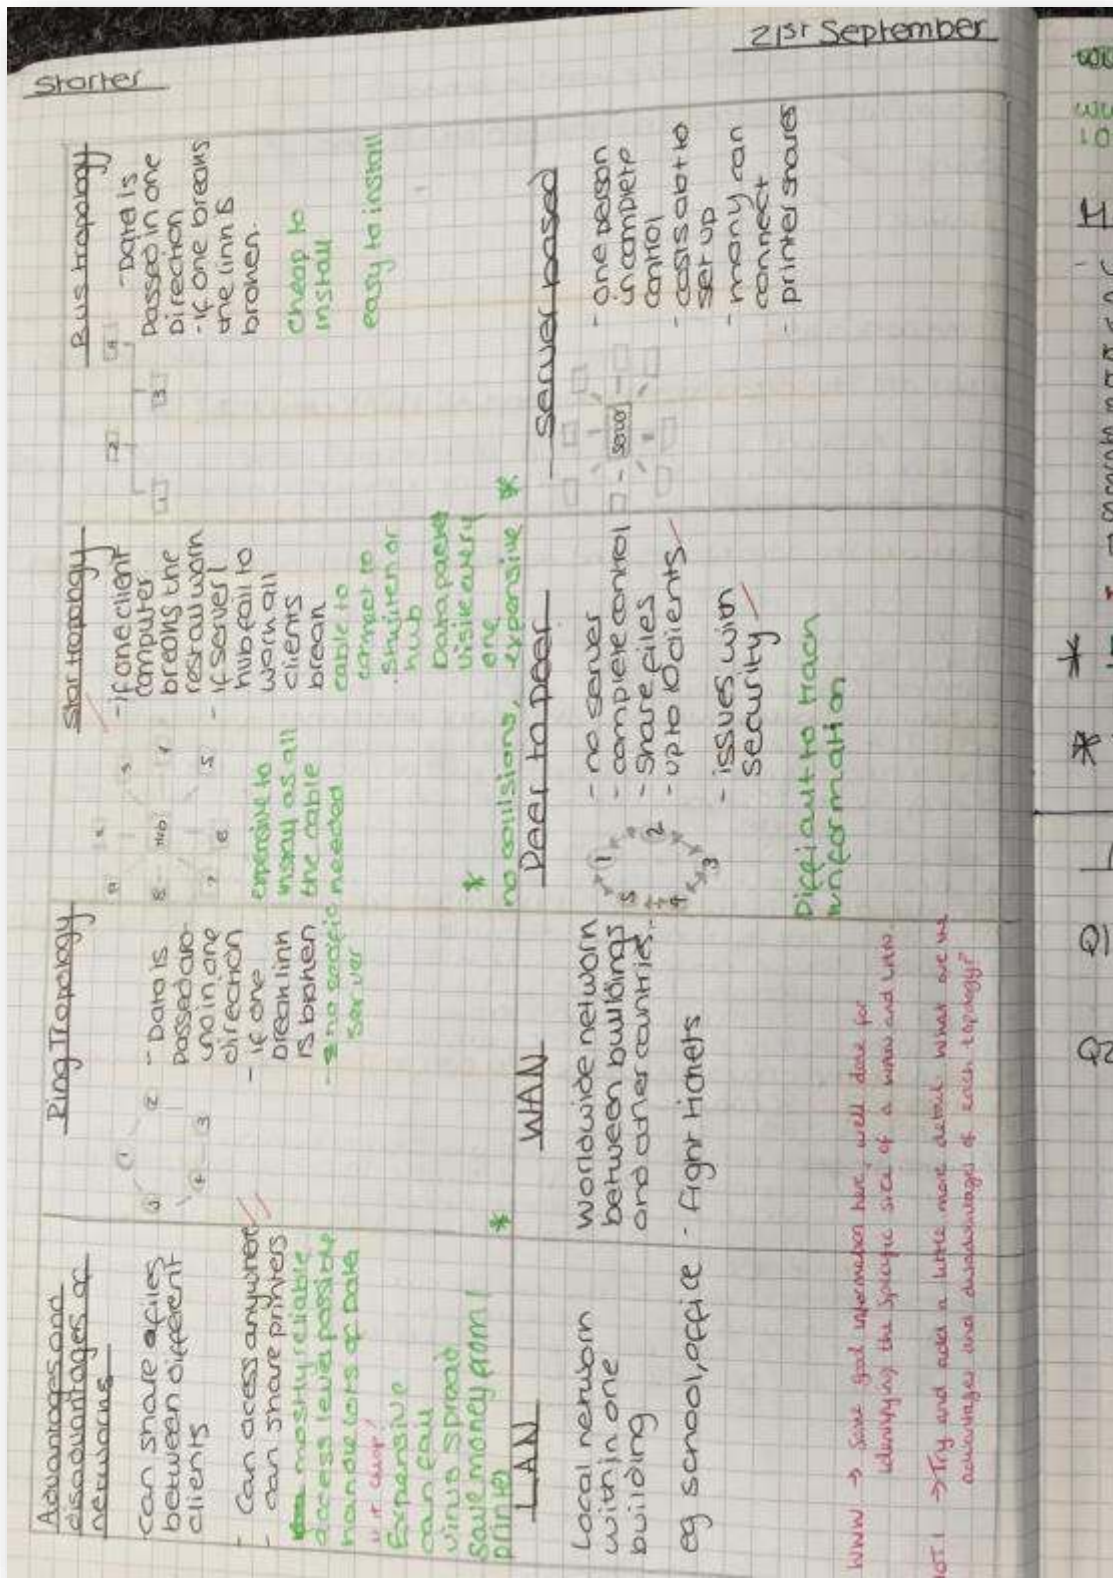 Starter
21st September
Advantages and
disadvantages of
networks
Can share files
between different
clients
- Can access anywhere
- can share printers
mostly reliable
access levels possible
handle lots of Data
Expensive
can fail
virus spread
save money from 1
printer
Ring Tropology
1
2
3
4
5
- Data is
passed aro-
und in one
direction
- if one
break link
is broken
- no
server
Star tropology
Hub
5
6
7
8
- if one client
computer
breaks the
rest all work
- if server /
hub fail to
work all
clients
break
cable to
connect to
switch or
hub
Data packet
one
expensive to
install as all
the cable
needed
*
no collisions, expensive *
Bus tropology
1
2
3
4
- Data is
passed in one
Direction
- if one breaks
the link is
broken.
Cheap to
install
easy to install
LAN
Local network
within one
building
eg school, office
*
WAN
Worldwide network
between buildings
and other countries.
- flight tickets
Peer to peer
1
2
3
4
5
- no server
- complete control
- Share files
- up to 10 clients
- issues with
security
Difficult to track
information
Server based
Server
- one person
in complete
control
- costs a bit to
set up
- many can
connect
- printer shares
WWW → Some good information here, well done for
identifying the specific size of a WAN and LAN
→ Try and add a little more detail. What are the
advantages and disadvantages of each topology?